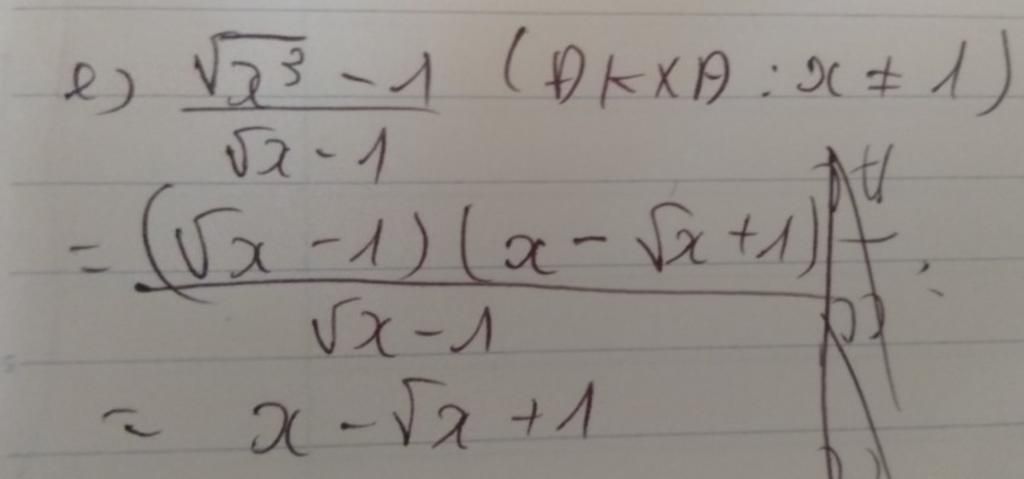 e) \frac{\sqrt{x^3} - 1}{\sqrt{x} - 1} (ĐKXĐ: x ≠ 1)
= \frac{(\sqrt{x} - 1)(x - \sqrt{x} + 1)}{\sqrt{x} - 1}
= x - \sqrt{x} + 1